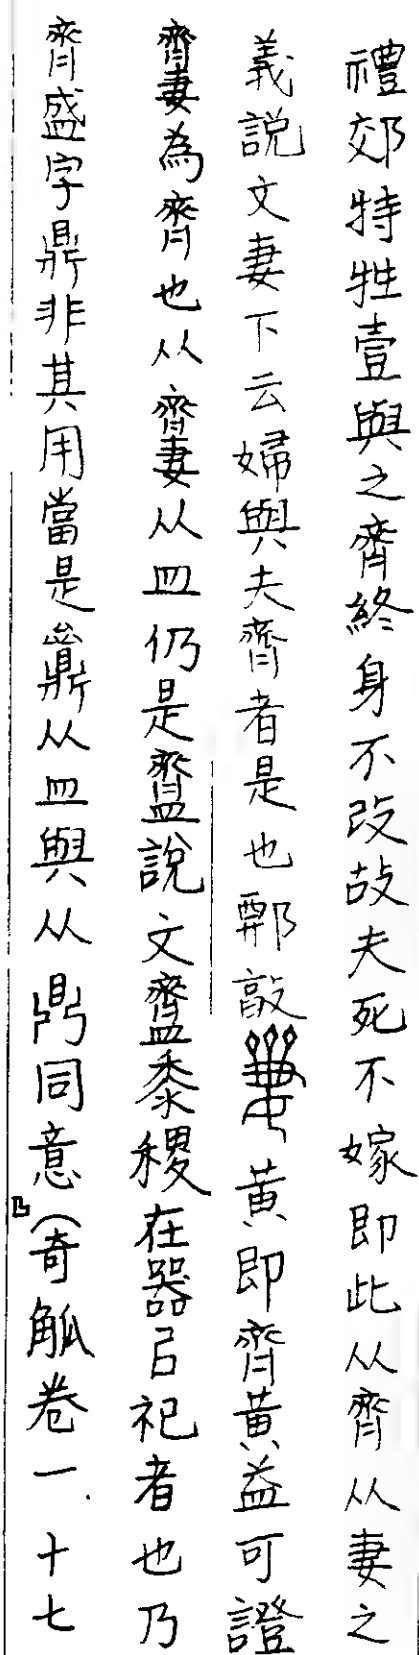 禮郊特牲壹與之齊終身不改故夫死不嫁即此从齊从妻之
義說文妻下云婦與夫齊者是也敦黃即齊黃益可證
䶒為齊也从䶒从皿仍是齍說文齍黍稷在器㠯祀者也乃
齊盛字鼎非其用當是从皿與从鼎同意（奇觚卷一．十七